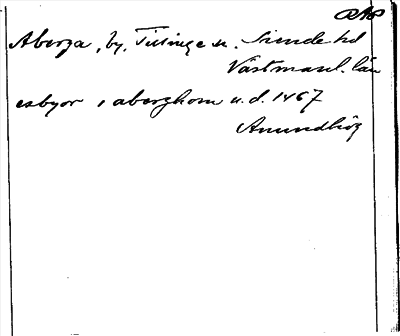 Aberga, by, Tillinge sn. Siende hd
Västmanl. län
esbyor i aberghom u.d. 1467
Anundhög